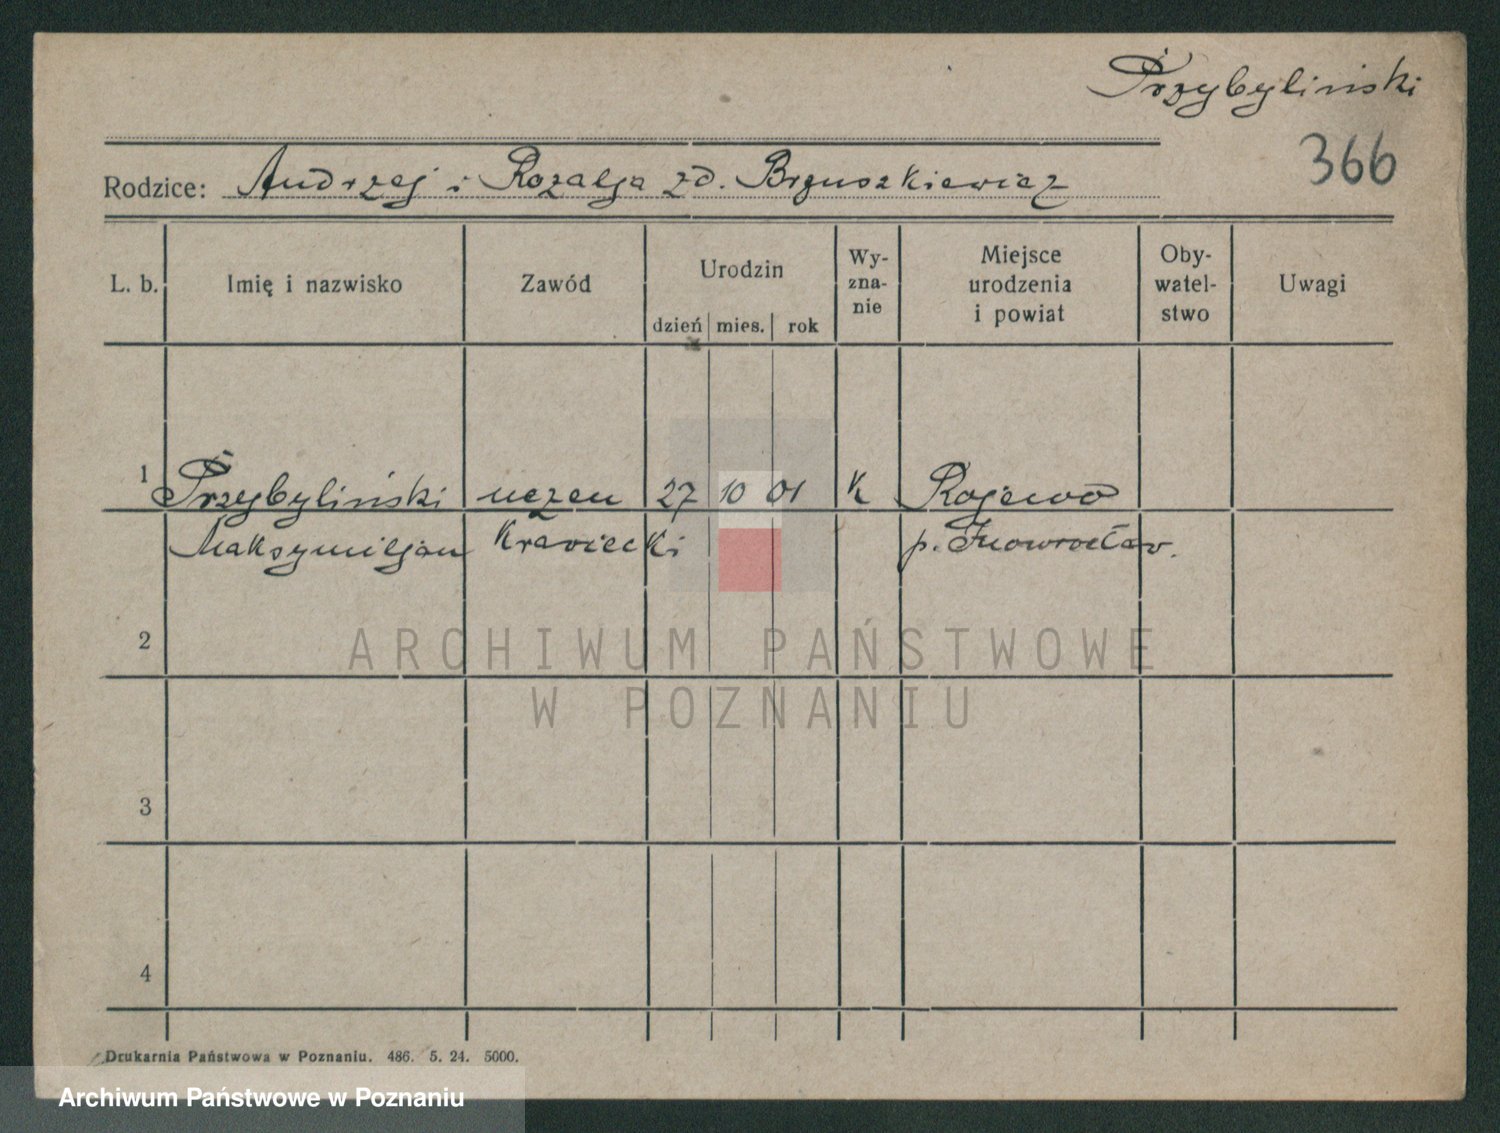 Przybyliński
366
Rodzice: Andrzej i Rozalja zd. Bryuszkiewicz
L. b. Imię i nazwisko Zawód Urodzin dzień mies. rok Wy-zna-nie Miejsce urodzenia i powiat Oby-watel-stwo Uwagi
1 Przybyliński uczeń 27 10 01 K Rojewo
Maksymiljan Krawiecki p. Inowrocław.
2
3
4
ARCHIWUM PAŃSTWOWE
W POZNANIU
Drukarnia Państwowa w Poznaniu. 486. 5. 24. 5000.
Archiwum Państwowe w Poznaniu